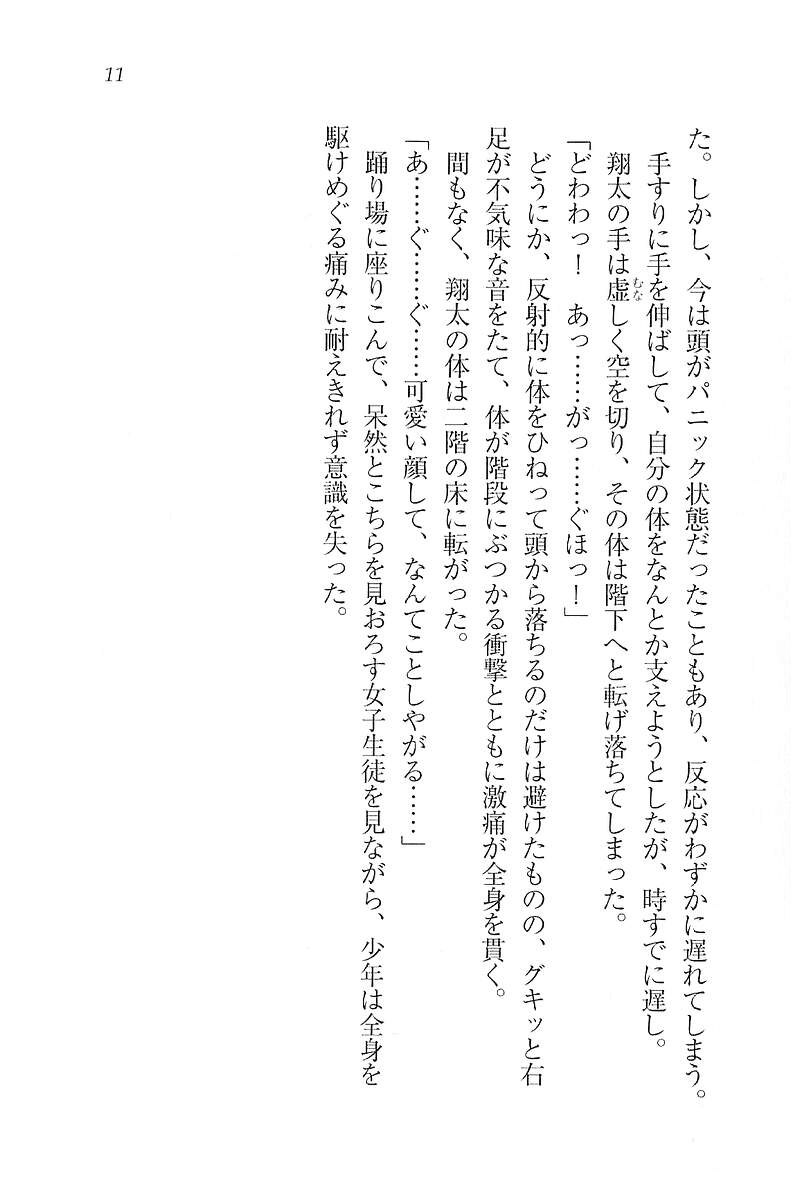 11
た。しかし、今は頭がパニック状態だったこともあり、反応がわずかに遅れてしまう。
手すりに手を伸ばして、自分の体をなんとか支えようとしたが、時すでに遅し。
翔太の手は虚むなしく空を切り、その体は階下へと転げ落ちてしまった。
「どわわっ！　あっ……がっ……ぐほっ！」
どうにか、反射的に体をひねって頭から落ちるのだけは避けたものの、グキッと右
足が不気味な音をたて、体が階段にぶつかる衝撃とともに激痛が全身を貫く。
間もなく、翔太の体は二階の床に転がった。
「あ……ぐ……ぐ……可愛い顔して、なんてことしやがる……」
踊り場に座りこんで、呆然とこちらを見おろす女子生徒を見ながら、少年は全身を
駆けめぐる痛みに耐えきれず意識を失った。